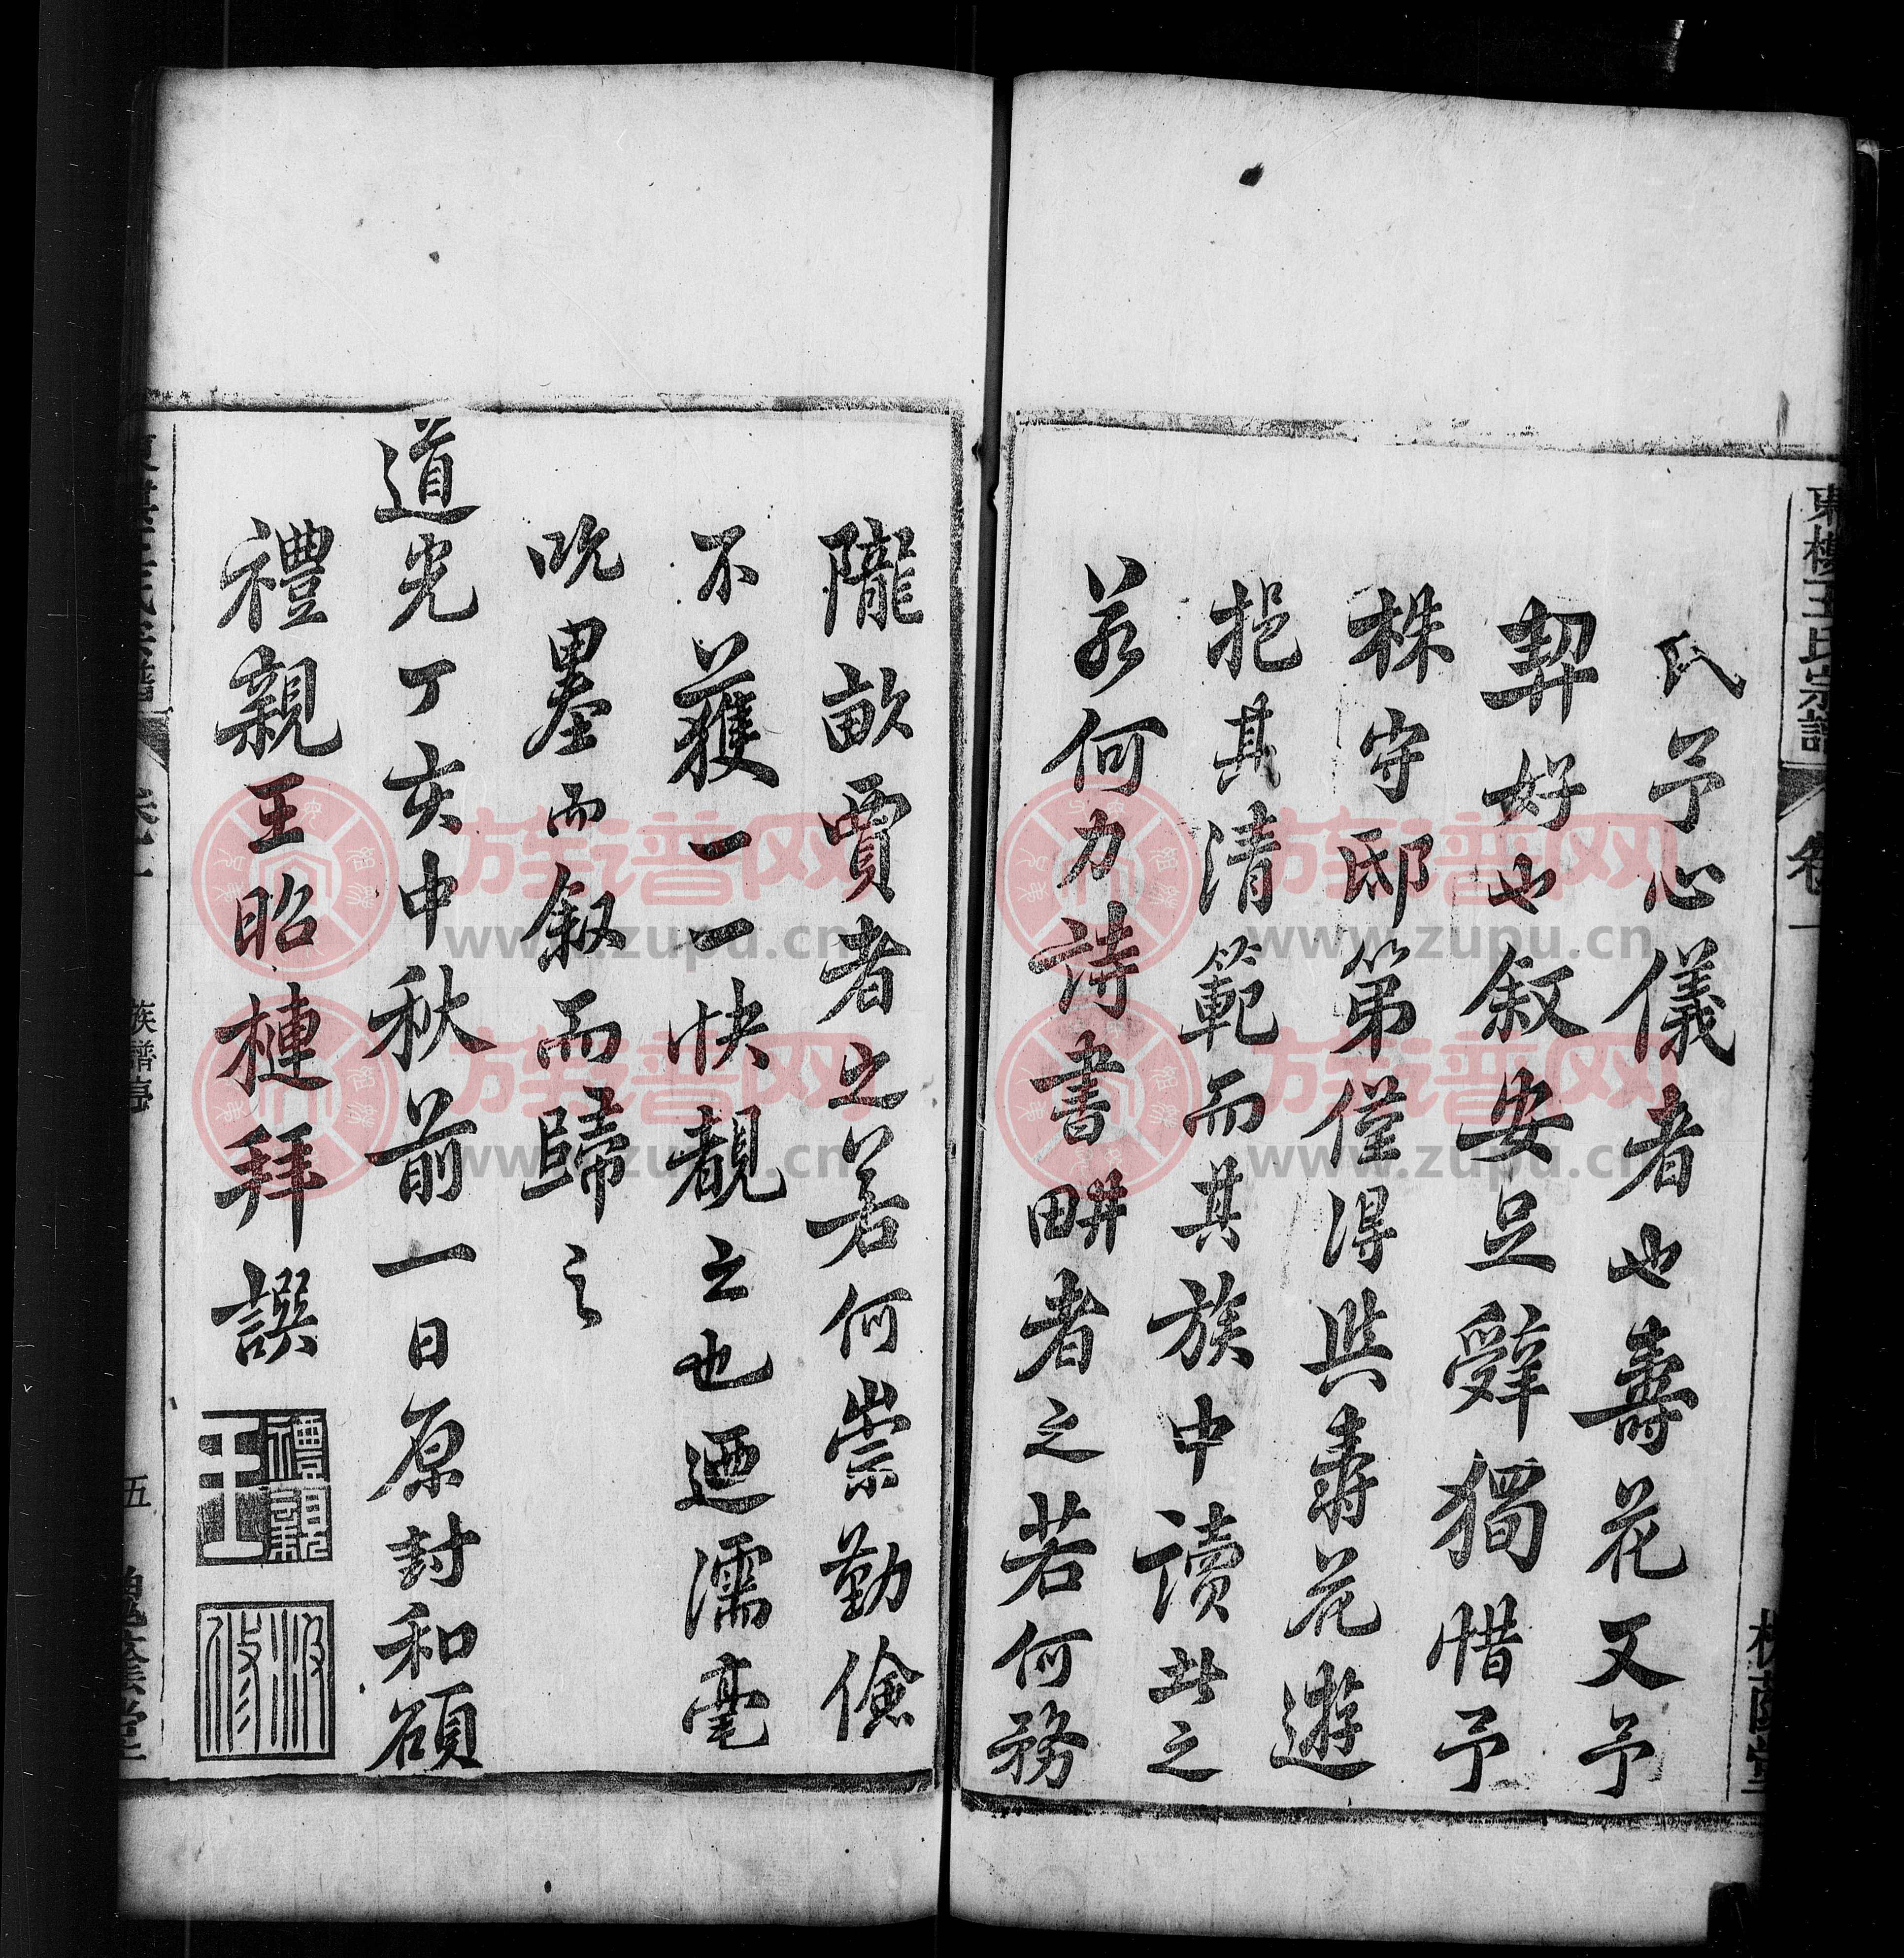 氏予心儀者也壽花又予
契好也敘安足辭獨惜予
株守邸第僅得與壽花遊
挹其清範而其族中讀此之
若何力詩書畊者之若何務
隴畝賈者之若何崇勤儉
不獲一一快覩之也迺濡毫
吮墨而叙而歸之
道光丁亥中秋前一日原封和碩
禮親王昭槤拜譔
禮親王
汲修
卷一
族譜序
五
槐蔭堂
族谱网
www.zupu.cn
族谱网
www.zupu.cn
族谱网
www.zupu.cn
族谱网
www.zupu.cn